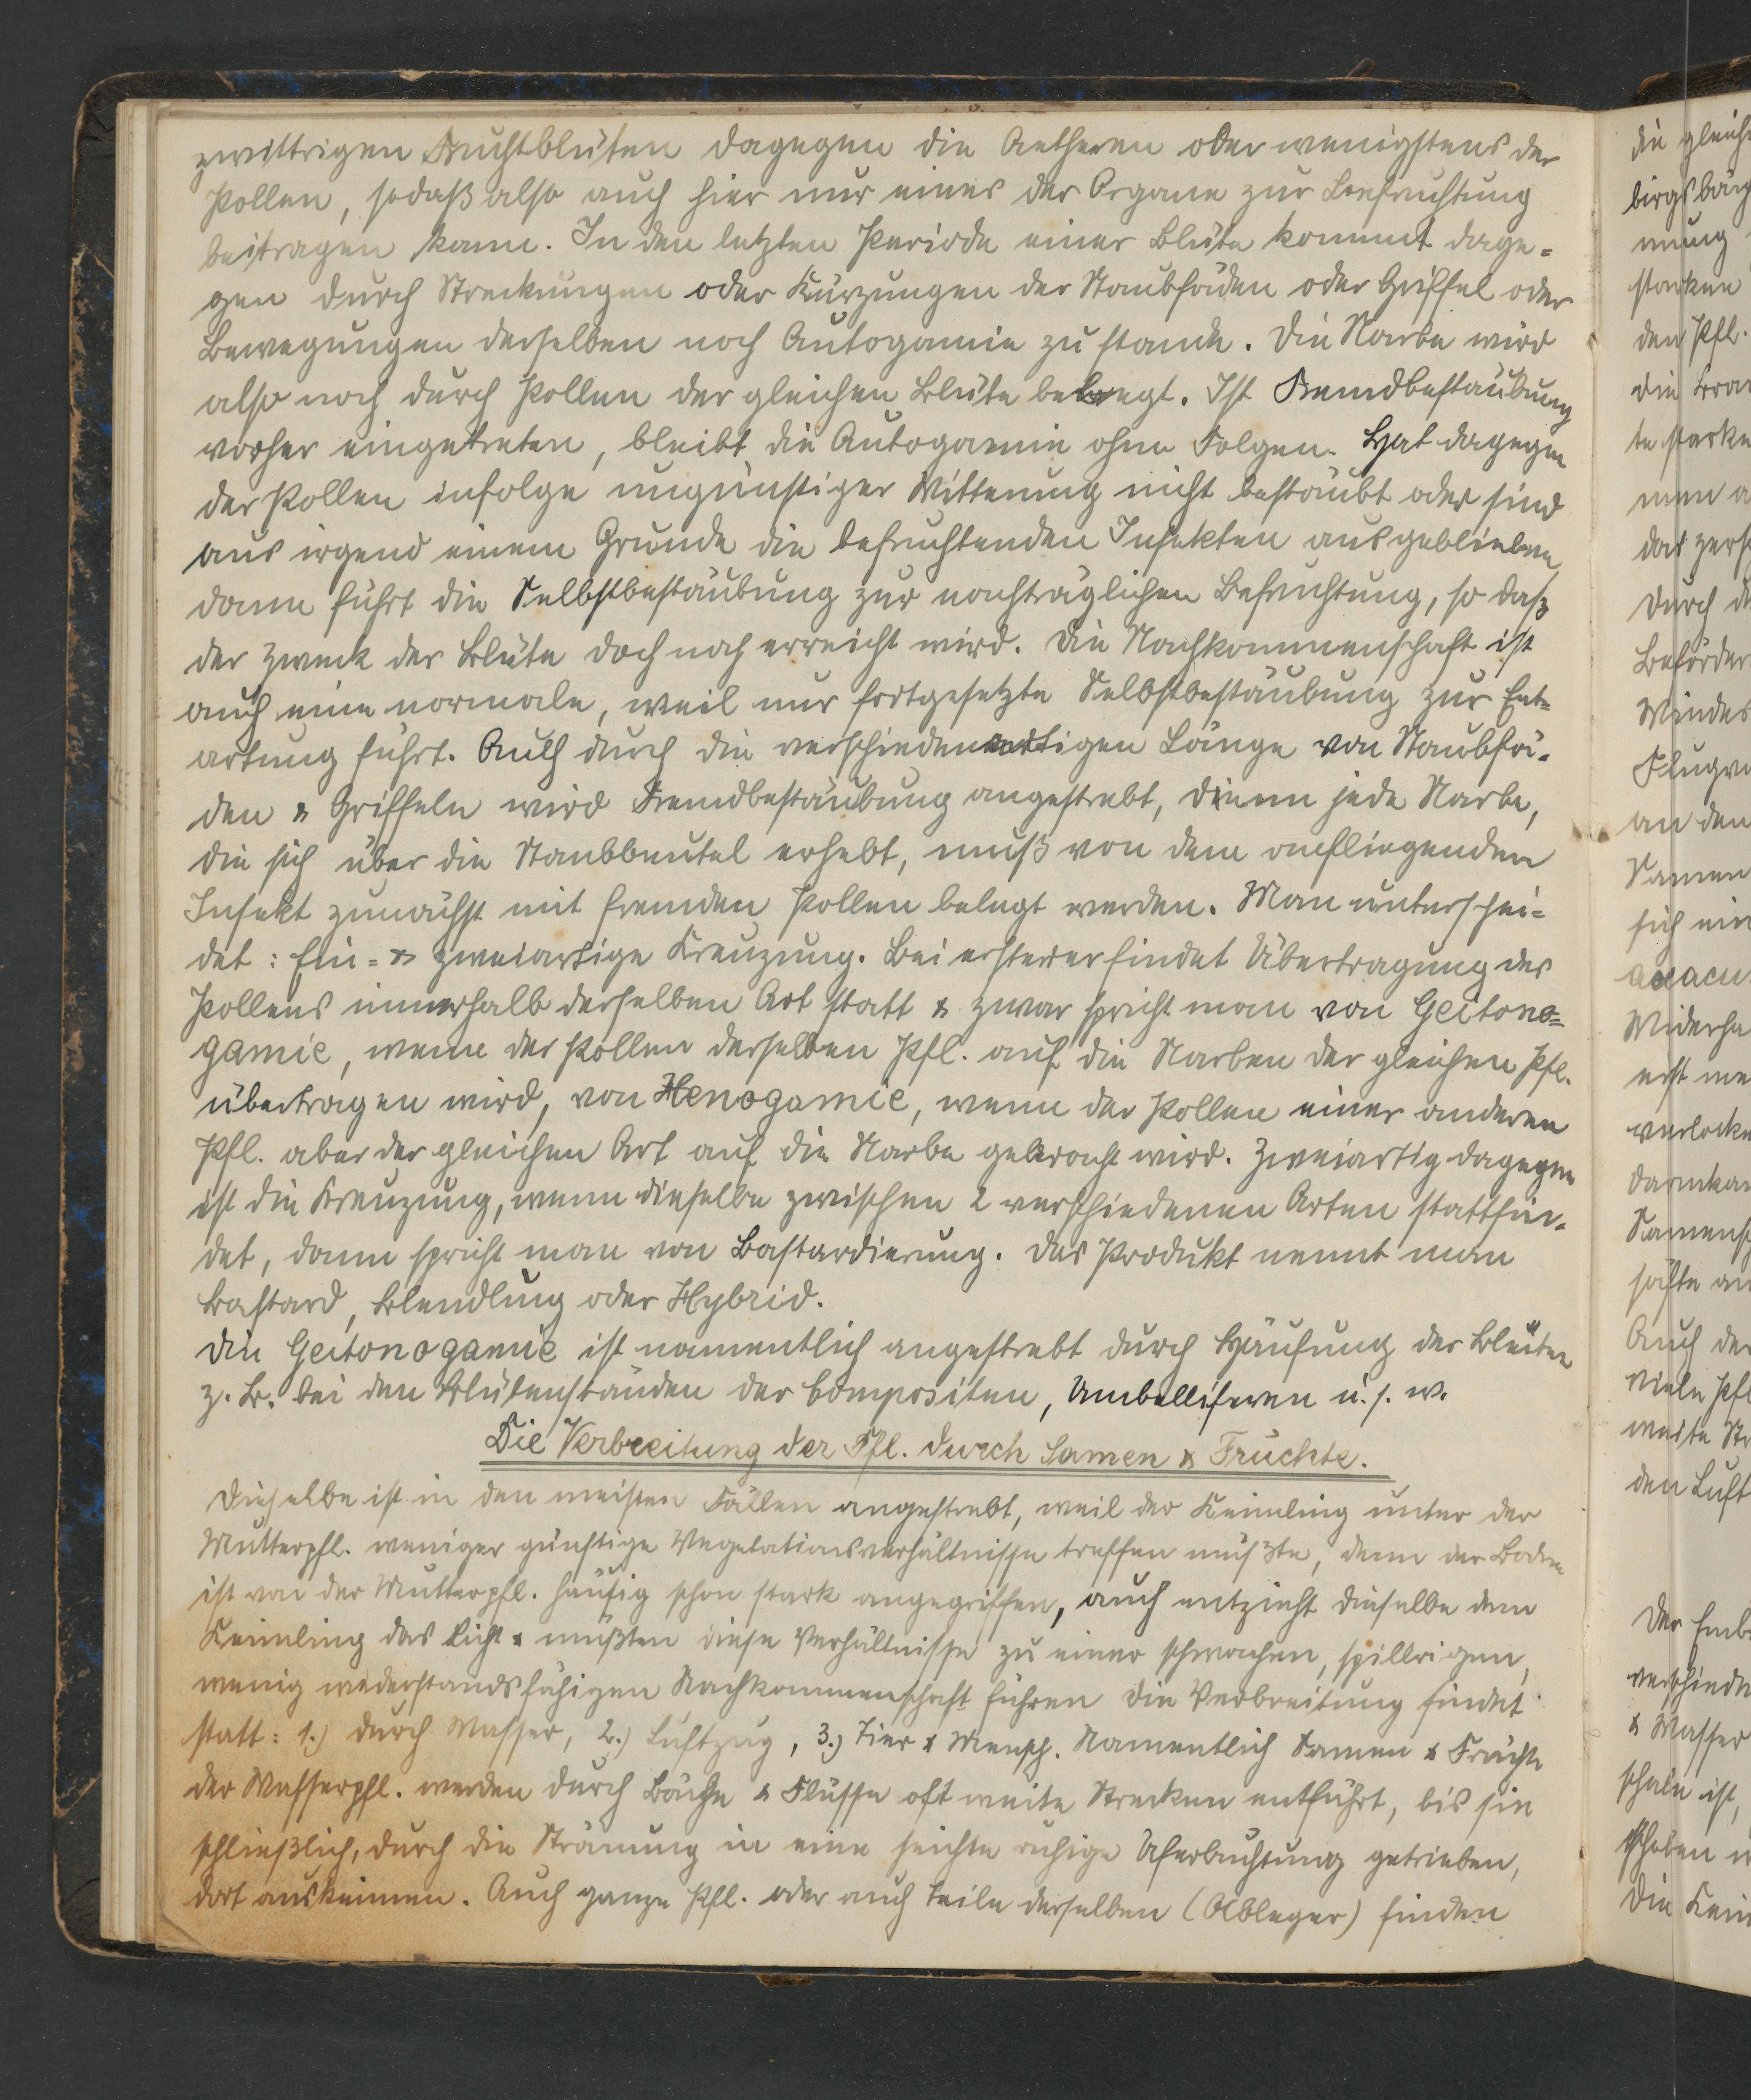 zwittrigen Fruchtblüten dagegen die Antheren oder wenigstens der
Pollen, sodaß also auch hier nur eines der Organe zur Befruchtung
beitragen kann. In den letzten Periode einer Blüte kommt dage-
gen durch Streckungen oder Kürzungen der Staubfäden oder Griffel oder
Bewegungen derselben noch Autogamie zu stande. Die Narbe wird
also noch durch Pollen der gleichen Blüte belegt. Ist Fremdbestäubung
vorher eingetreten, bleibt die Autogamie ohne Folgen. Hat dagegen
der Pollen infolge ungünstiger Witterung nicht bestäubt oder sind
aus irgend einem Grunde die befruchtenden Insekten ausgeblieben,
dann führt die Selbstbestäubung zur nachträglichen Befruchtung, so daß
der Zweck der Blüte doch noch erreicht wird. Die Nachkommenschaft ist
auch eine normale, weil nur fortgesetzte Selbstbestäubung zur Ent-
artung führt. Auch durch die verschiedenartigen Länge von Staubfä-
den & Griffeln wird Fremdbestäubung angestrebt, denn jede Narbe,
die sich über die Staubbeutel erhebt, muß von dem anfliegenden
Insekt zunächst mit fremden Pollen belegt werden. Man unterschei-
det: Ein- & zweiartige Kreuzung. Bei ersterer findet Übertragung des
Pollens innerhalb derselben Art statt & zwar spricht man von Geitono-
gamie, wenn der Pollen derselben Pfl. auf die Narben der gleichen Pfl.
übertragen wird, von Xenogamie, wenn der Pollen einer anderen
Pfl. aber der gleichen Art auf die Narbe gebracht wird. Zweiartig dagegen
ist die Kreuzung, wenn dieselbe zwischen 2 verschiedenen Arten stattfin-
det, dann spricht man von Bastardierung. Das Produkt nennt man
Bastard, Blendling oder Hybrid.
Die Geitonogamie ist namentlich angestrebt durch Häufung der Blüten
z. B. bei den Blütenständen der Compositen, Umbelliferen u. s. w.
Die Verbreitung der Pfl. durch Samen & Früchte.
Dieselbe ist in den meisten Fällen angestrebt, weil der Keimling unter der
Mutterpfl. weniger günstige Vegetationsverhältnisse treffen müßte, denn der Boden
ist von der Mutterpfl. häufig schon stark angegriffen, auch entzieht dieselbe dem
Keimling das Licht & müßten diese Verhältnisse zu einer schwachen, spillrigen,
wenig widerstandsfähigen Nachkommenschaft führen Die Verbreitung findet
statt: 1.) durch Wasser, 2.) Luftzug, 3.) Tier & Mensch. Namentlich Samen & Früchte
der Wasserpfl. werden durch Bäche & Flüsse oft weite Strecken entführt, bis sie
schließlich, durch die Strömung in eine seichte ruhige Uferbuchtung getrieben,
dort auskeimen. Auch ganze Pfl. oder auch Teile derselben (Ableger) finden